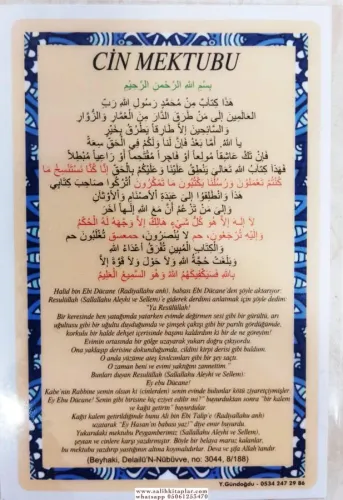 CİN MEKTUBU
بِسْمِ اللهِ الرَّحْمنِ الرَّحِيْمِ
هَذَا كِتَابٌ مِنْ مُحَمَّدٍ رَسُولِ اللهِ رَبِّ
العَالَمِينَ إِلَى مَنْ طَرَقَ الدَّارَ مِنَ العُمَّارِ وَالزُّوَّارِ
وَالسَّائِحِينَ إِلاَّ طَارِقاً يَطْرُقُ بِخَيْرٍ
يَا اللهُ. أَمَّا بَعْدُ فَإِنَّ لَنَا وَلَكُمْ فِي الْحَقِّ سِعَةً
فَإِنْ تَكُ عَاشِقاً مُولِعاً أَوْ فَاجِراً مُقْتَحِماً أَوْ رَاعِياً مُبْطِلاً
فَهَذَا كِتَابُ اللهِ تَعَالَى يَنْطِقُ عَلَيْنَا وَعَلَيْكُمْ بِالْحَقِّ إِنَّا كُنَّا نَسْتَنْسِخُ مَا
كُنْتُمْ تَعْمَلُونَ وَرُسُلُنَا يَكْتُبُونَ مَا تَمْكُرُونَ أُتْرُكُوا صَاحِبَ كِتَابِي
هَذَا وَانْطَلِقُوا إِلَى عَبَدَةِ الأَصْنَامِ وَالأَوْثَانِ
وَإِلَى مَنْ تَزْعُمُ أَنَّ مَعَ اللهِ إِلَهاً آخَرَ
لاَ إِلَهَ إِلاَّ هُوَ كُلُّ شَيْءٍ هَالِكٌ إِلاَّ وَجْهَهُ لَهُ الْحُكْمُ
وَإِلَيْهِ تُرْجَعُونَ، حم لاَ يُنْصَرُونَ، حمعسق تُغْلَبُونَ حم
وَالْكِتَابِ الْمُبِينِ تُفَرَّقُ أَعْدَاءُ اللهِ
وَبَلَغَتْ حُجَّةُ اللهِ وَلاَ حَوْلَ وَلاَ قُوَّةَ إِلاَّ
بِاللهِ فَسَيَكْفِيكَهُمُ اللهُ وَهُوَ السَّمِيعُ الْعَلِيمُ
Halid bin Ebi Dücane (Radiyallahu anh), babası Ebi Dücane'den şöyle aktarıyor:
Resulüllah (Sallallahu Aleyhi ve Sellem)'e giderek derdimi anlatmak için şöyle dedim:
"Ya Resülüllah!
Bir keresinde ben yatağımda yatarken evimde değirmen sesi gibi bir gürültü, arı
uğultusu gibi bir uğultu duyduğumda ve şimşek çakışı gibi bir parıltı gördüğümde,
korkulu bir halde dehşet içerisinde başımı kaldırdım ki bir de ne göreyim!
Evimin ortasında bir gölge uzayarak yukarı doğru çıkıyordu.
Ona yaklaşıp derisine dokunduğumda, cildini kirpi derisi gibi buldum.
O anda yüzüme ateş kıvılcımları gibi bir şey saçtı.
O zaman beni ve evimi yaktığını zannettim."
Bunları duyan Resulüllah (Sallallahu Aleyhi ve Sellem):
Ey ebu Dücane!
Kabe'nin Rabbine yemin olsun ki (cinlerden) senin evinde bulunlar kötü ziyaretçiymişler.
Ey Ebu Dücane! Senin gibi birisine hiç eziyet edilir mi?" buyurduktan sonra "bir kalem
ve kağıt getirin" buyurdular.
Kağıt kalem getirildiğinde bunu Ali bin Ebi Talip'e (Radiyallahu anh)
uzatarak "Ey Hasan'in babası yaz!" diye emir buyurdu.
Yukarıdaki mektubu Peygamberimiz (Sallallahu Aleyhi ve Sellem),
şeytan ve cinlere karşı yazdırmıştır. Böyle bir belaya maruz kalanlar,
bu mektubu yazdırıp yastığının altına koymalıdırlar. Deva ve şifa Allah'tandır.
(Beyhaki, Delailü'N-Nübüvve, no: 3044, 8/188)
Y.Gündoğdu - 0534 247 29 86
www.salihkitaplar.com
whatsapp 05061253470